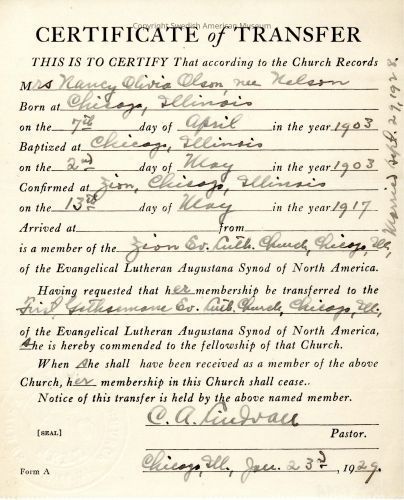 Copyright Swedish American Museum
CERTIFICATE of TRANSFER
THIS IS TO CERTIFY That according to the Church Records
Mrs Nancy Olivia Olson, nee Nelson
Born at Chicago, Illinois
on the 7th day of April in the year 1903
Baptized at Chicago, Illinois
on the 2nd day of May in the year 1903
Confirmed at Zion, Chicago, Illinois
on the 13th day of May in the year 1917
Arrived at from
is a member of the Zion Ev. Luth. Church, Chicago, Ill.
of the Evangelical Lutheran Augustana Synod of North America.
Having requested that her membership be transferred to the
First Gethsemane Ev. Luth. Church, Chicago, Ill.,
of the Evangelical Lutheran Augustana Synod of North America,
she is hereby commended to the fellowship of that Church.
When she shall have been received as a member of the above
Church, her membership in this Church shall cease.
Notice of this transfer is held by the above named member.
C. A. Lindvall
[SEAL] Pastor.
Chicago, Ill., Jan. 23rd, 1929.
Form A
Married Sept. 29, 1928.